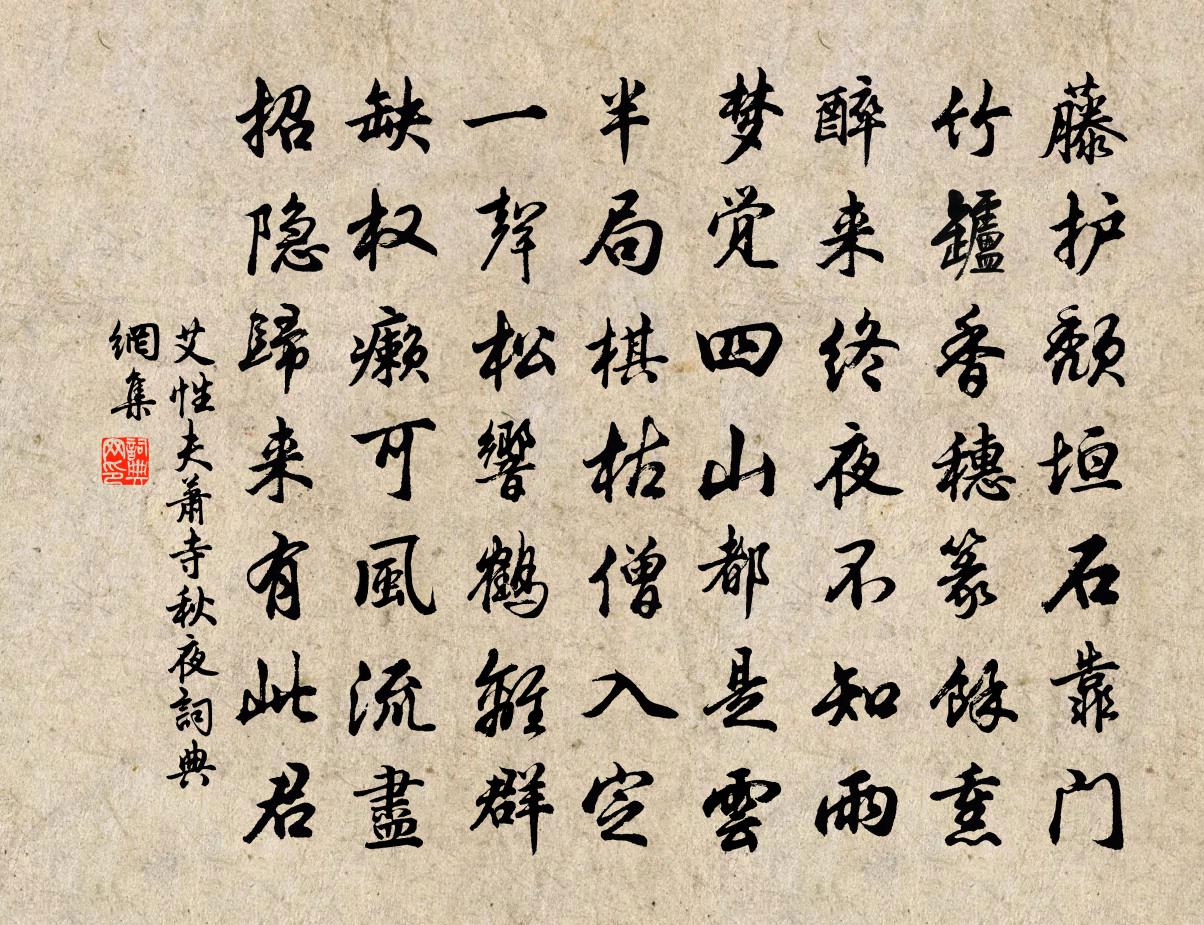 藤护颓垣石靠门
竹罏香穗篆馀熏
醉来终夜不知雨
梦觉四山都是雲
半局棋枯僧入定
一聲松響鶴離群
缺权癞可風流盡
招隐歸来有此君
艾性夫萧寺秋夜詞典
網集
詞典
网印